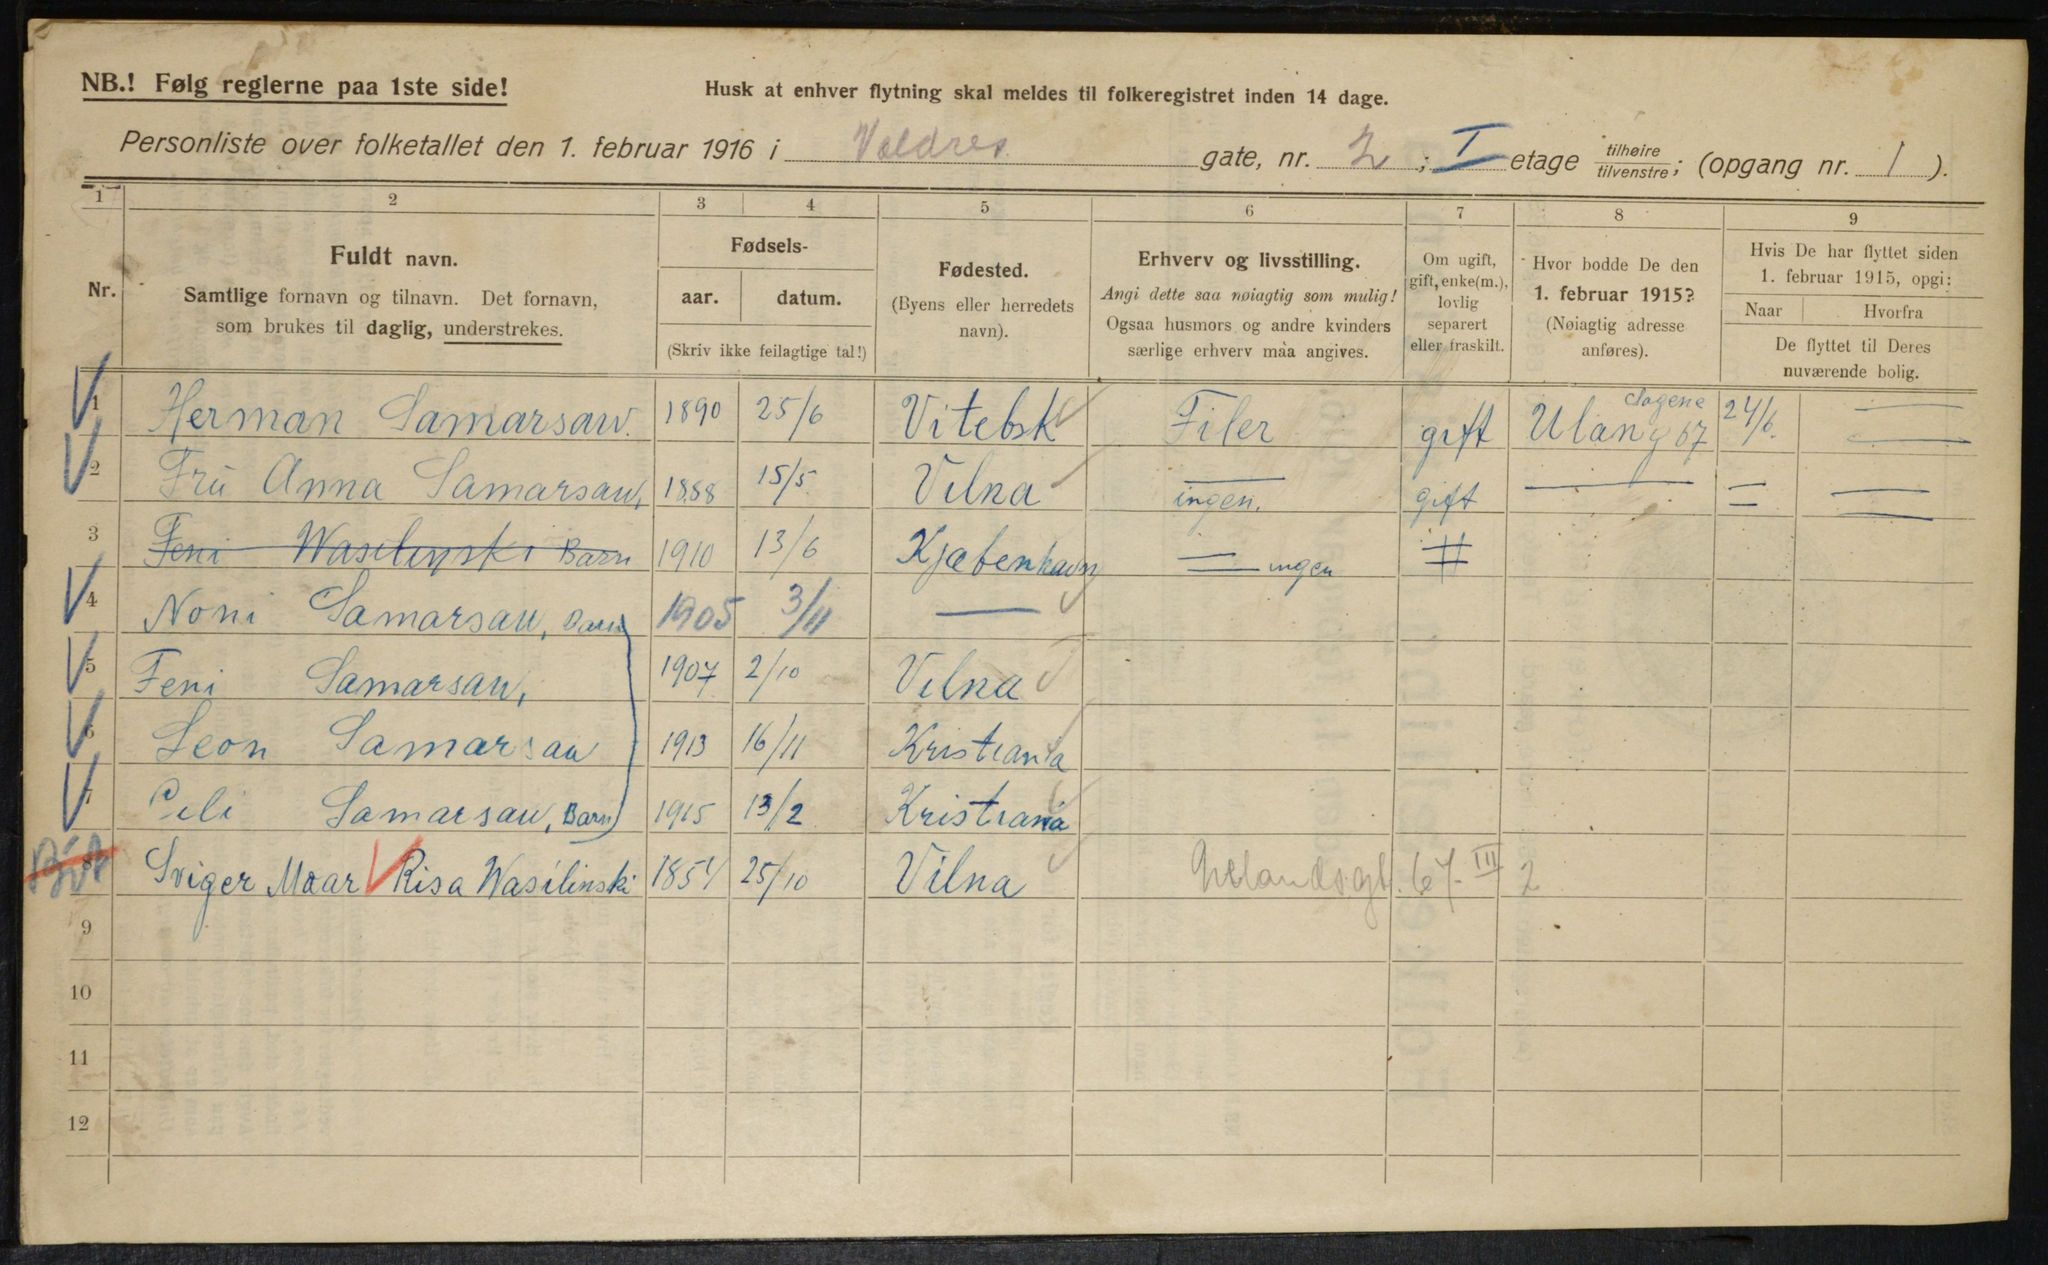 NB.! Følg reglerne paa 1ste side!
Husk at enhver flytning skal meldes til folkeregistret inden 14 dage.
Personliste over folketallet den 1. februar 1916 i Valdres gate, nr. 2 ; I etage tilhøire tilvenstre ; (opgang nr. 1 ).
1 2 3 4 5 6 7 8 9
Nr.
Fuldt navn.
Samtlige fornavn og tilnavn. Det fornavn,
som brukes til daglig, understrekes.
Fødsels-
aar. datum.
(Skriv ikke feilagtige tal!)
Fødested.
(Byens eller herredets
navn).
Erhverv og livsstilling.
Angi dette saa nøiagtig som mulig!
Ogsaa husmors og andre kvinders
særlige erhverv maa angives.
Om ugift,
gift, enke(m.),
lovlig
separert
eller fraskilt.
Hvor bodde De den
1. februar 1915?
(Nøiagtig adresse
anføres).
Hvis De har flyttet siden
1. februar 1915, opgi:
Naar Hvorfra
De flyttet til Deres
nuværende bolig.
1 Herman Samarsaw. 1890 25/6 Vitebsk Filer gift Sagene Ulang 67 24/6.
2 Fru Anna Samarsaw, 1888 15/5 Vilna ingen. gift
3 Feni Wasilinski Barn 1910 13/6 Kjøbenhavn ingen
4 Noni Samarsaw, Barn 1905 3/11
5 Feni Samarsaw, 1907 2/10 Vilna
6 Leon Samarsaw 1913 16/11 Kristiania
7 Samarsaw, Barn 1915 13/2 Kristiania
8 Sviger Moar Risa Wasilinski 1854 25/10 Vilna 67 III 2
9
10
11
12